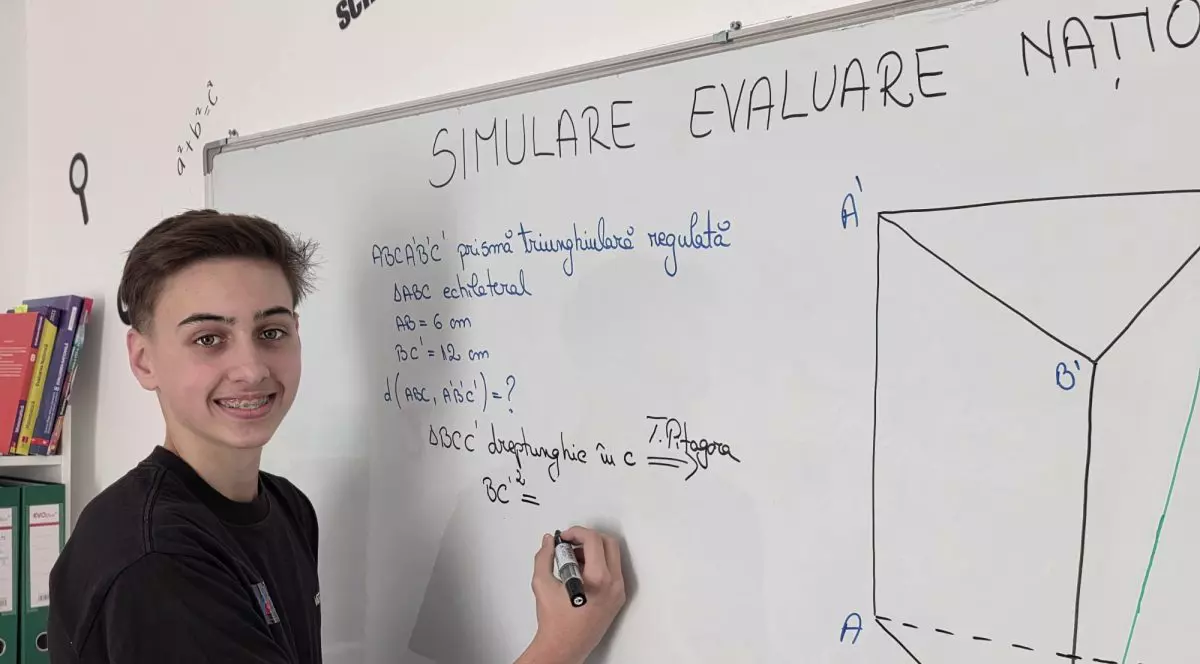 a² x b² = c²
SIMULARE EVALUARE NAȚIO
ABCA'B'C' prismă triunghiulară regulată
ΔABC echilateral
AB = 6 cm
BC' = 12 cm
d(ABC, A'B'C') = ?
ΔBCC' dreptunghic în C T. Pitagora ⟹
BC'² =
A'
B'
A